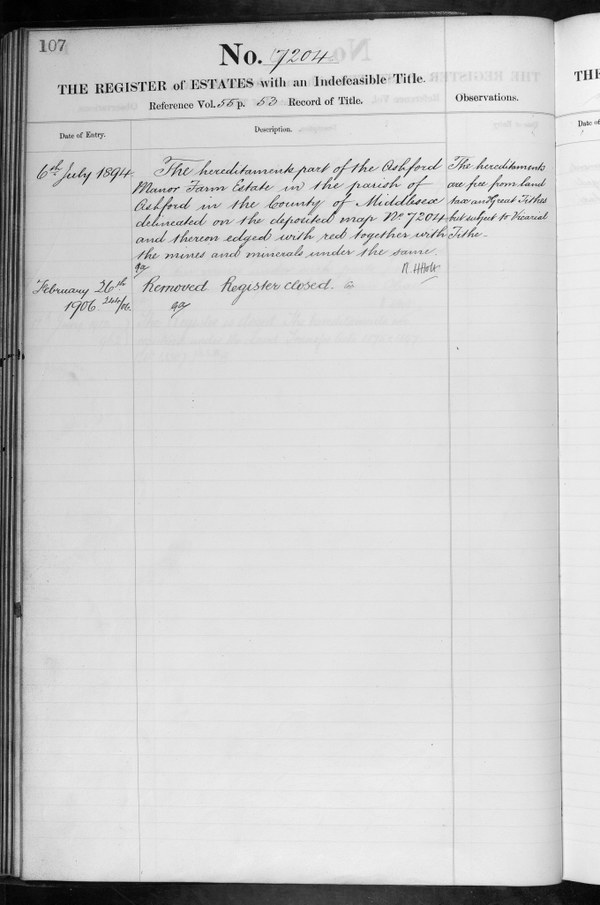 107
No. 7204
THE REGISTER of ESTATES with an Indefeasible Title.
Reference Vol. 55 p. 53 Record of Title.
Observations.
Date of Entry.
Description.
6th July 1894.
The hereditaments part of the Ashford
Manor Farm Estate in the parish of
Ashford in the County of Middlesex
delineated on the deposited map No 7204
and thereon edged with red together with
the mines and minerals under the same.
The hereditaments
are free from land
tax and Great Tithes
but subject to Vicarial
Tithe.
R. H. Holt
February 26th
1906 244/06.
Removed Register closed.
THE